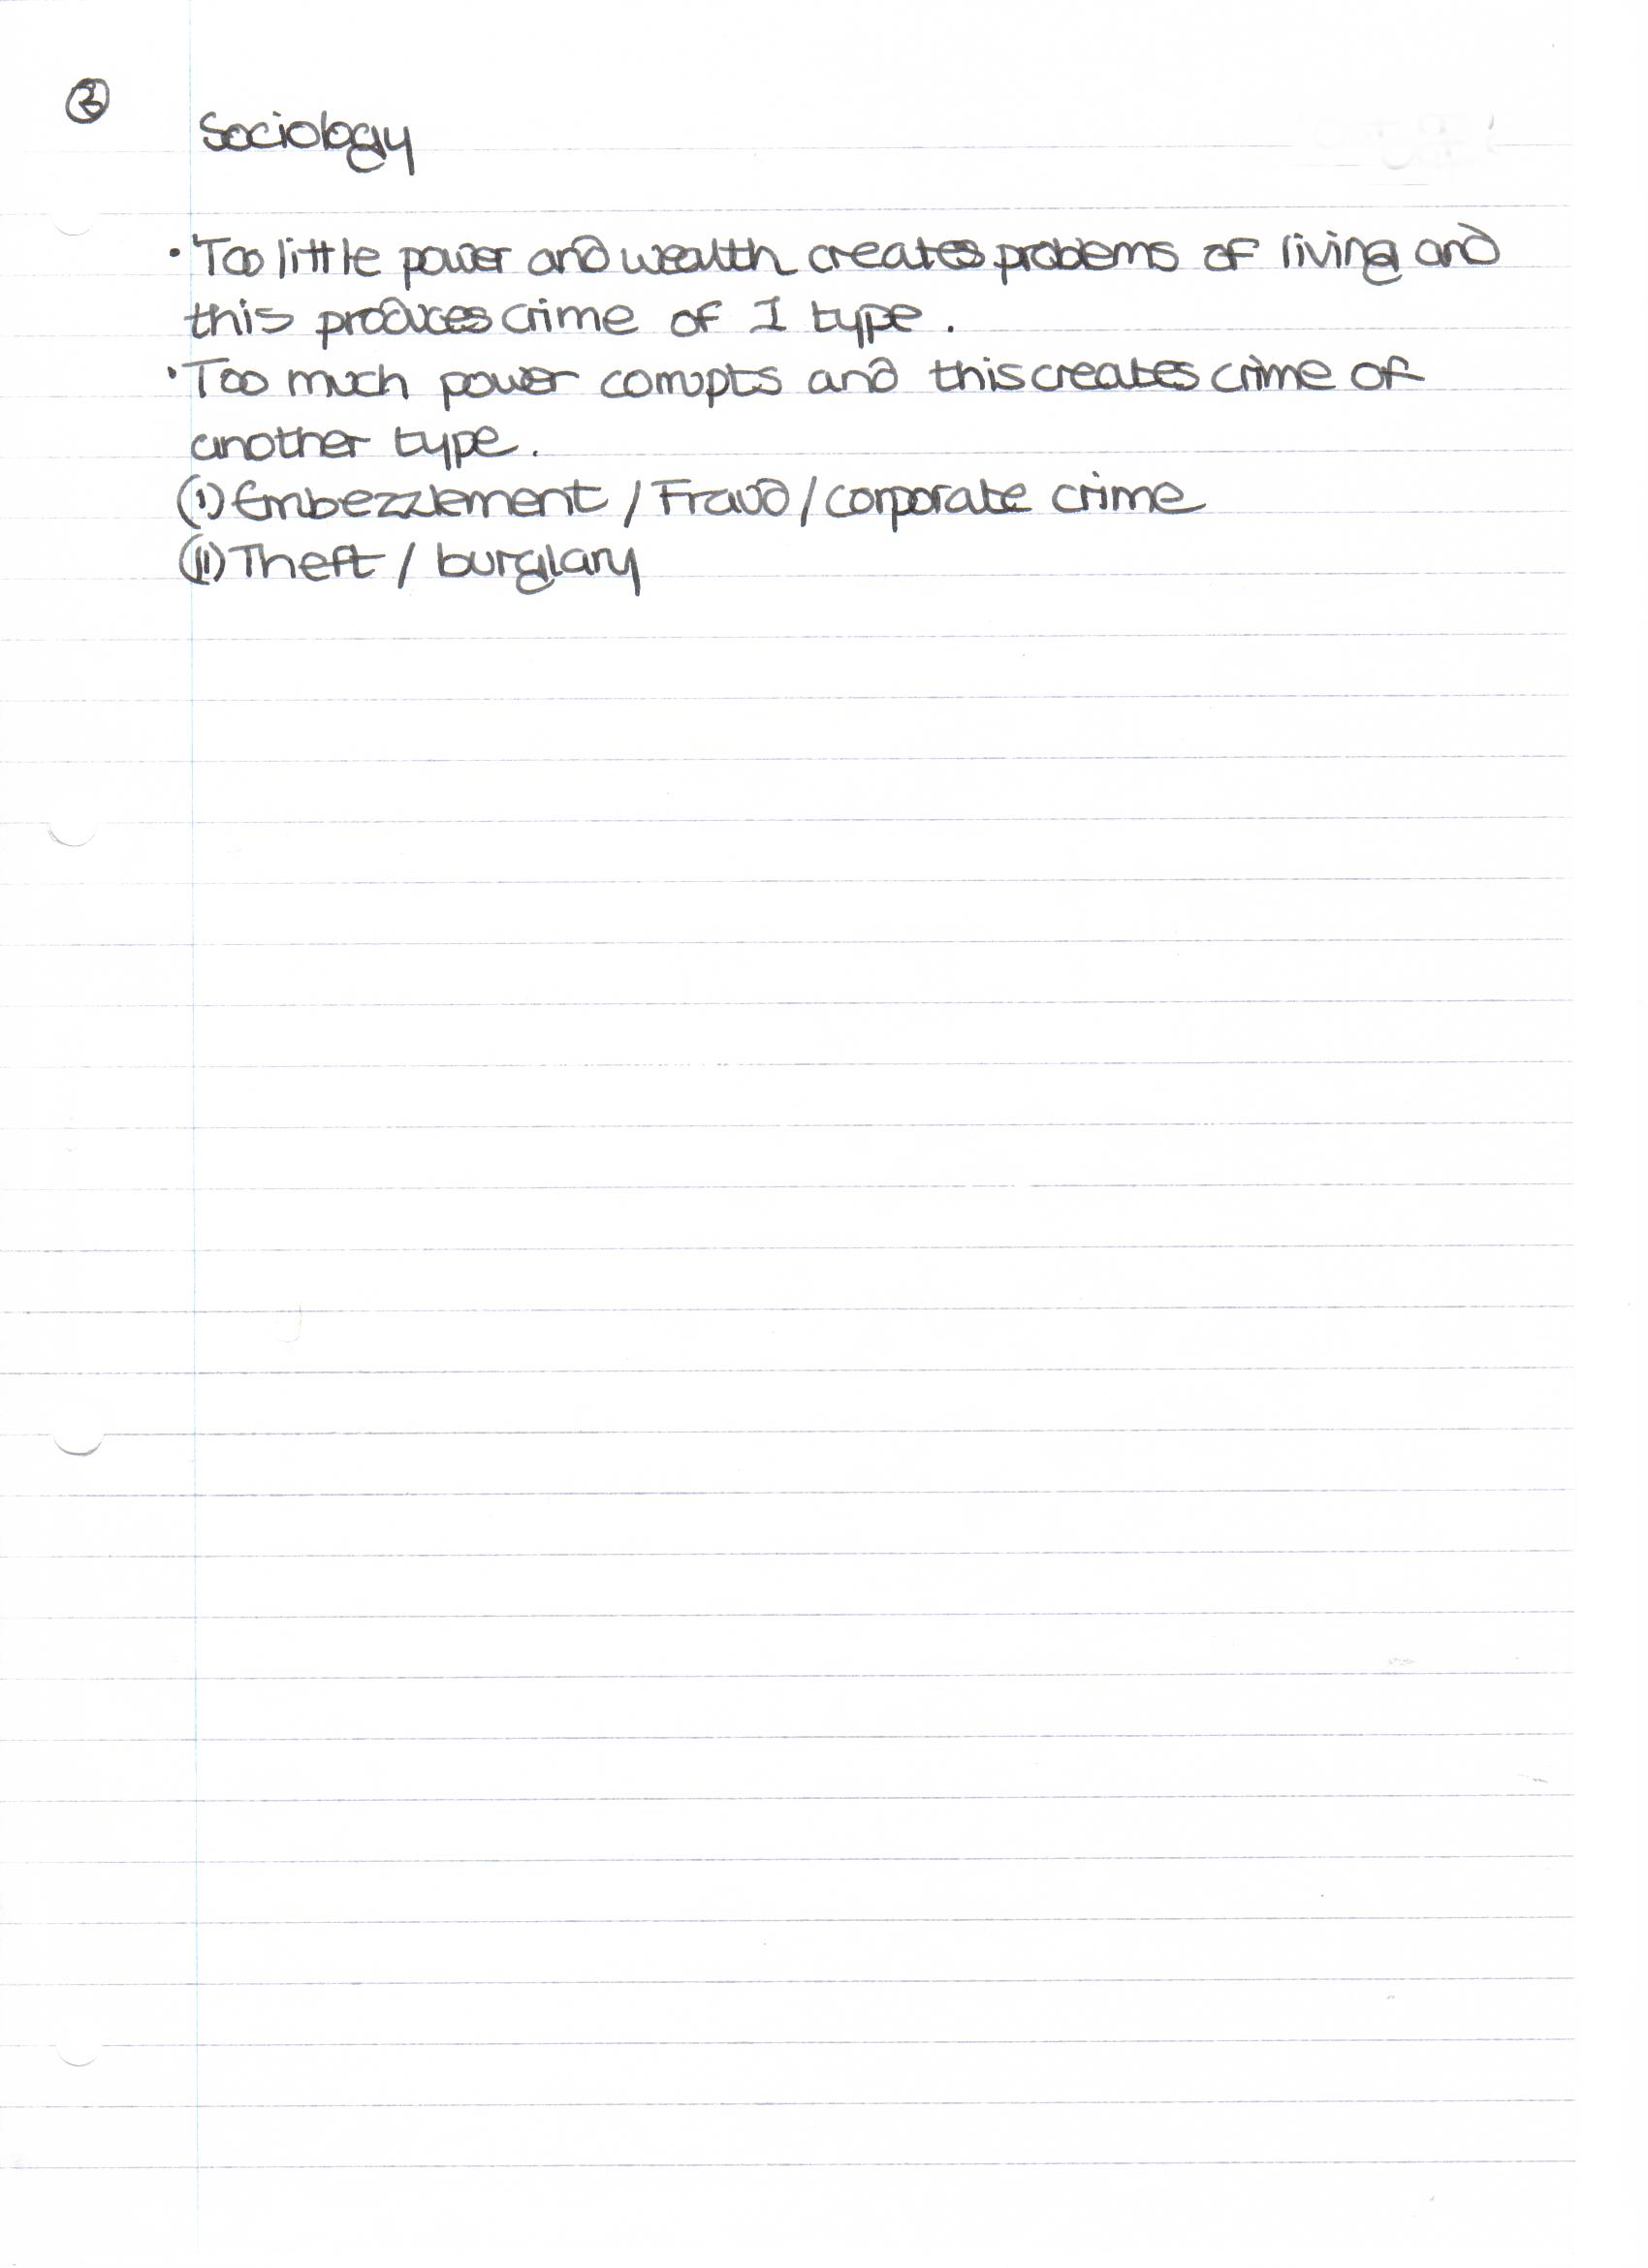 ②
Sociology
• Too little power and wealth creates problems of living and
this produces crime of 1 type.
• Too much power corrupts and this creates crime of
another type.
(i) Embezzlement / Fraud / corporate crime
(ii) Theft / burglary